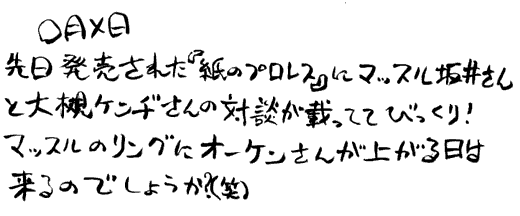 〇月×日
先日発売された『紙のプロレス』にマッスル坂井さん
と大槻ケンヂさんの対談が載っててびっくり！
マッスルのリングにオーケンさんが上がる日は
来るのでしょうか？(笑)